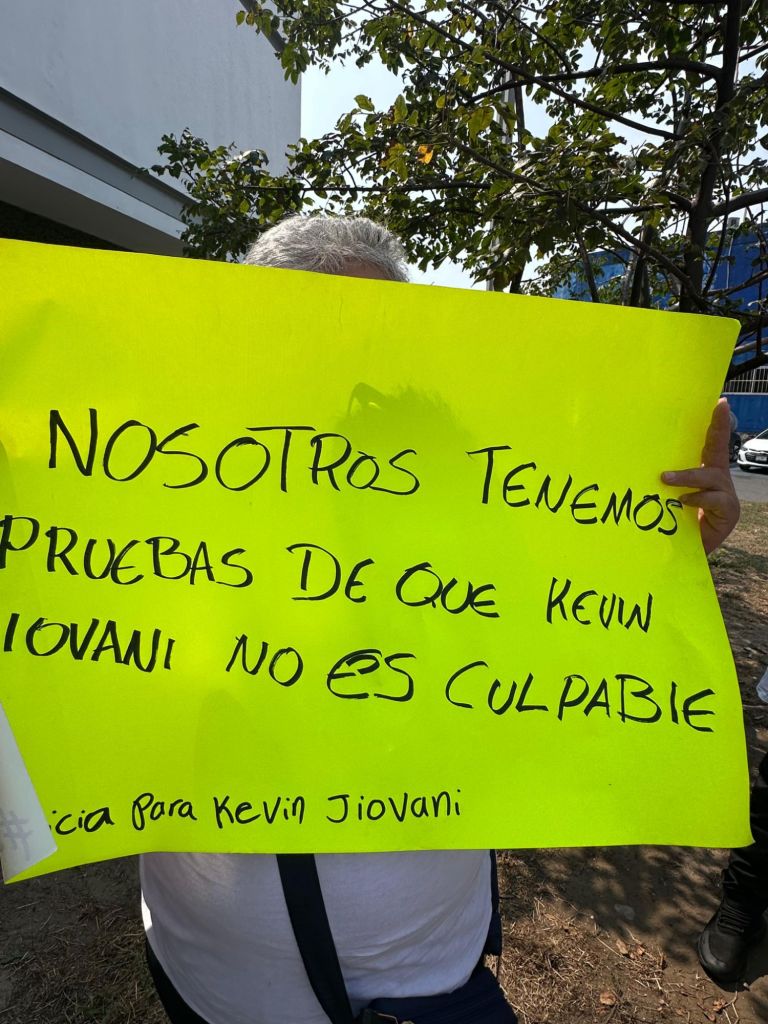 NOSOTROS TENEMOS
PRUEBAS DE QUE KEVIN
IOVANI NO ES CULPABLE
icia para Kevin Jiovani
#